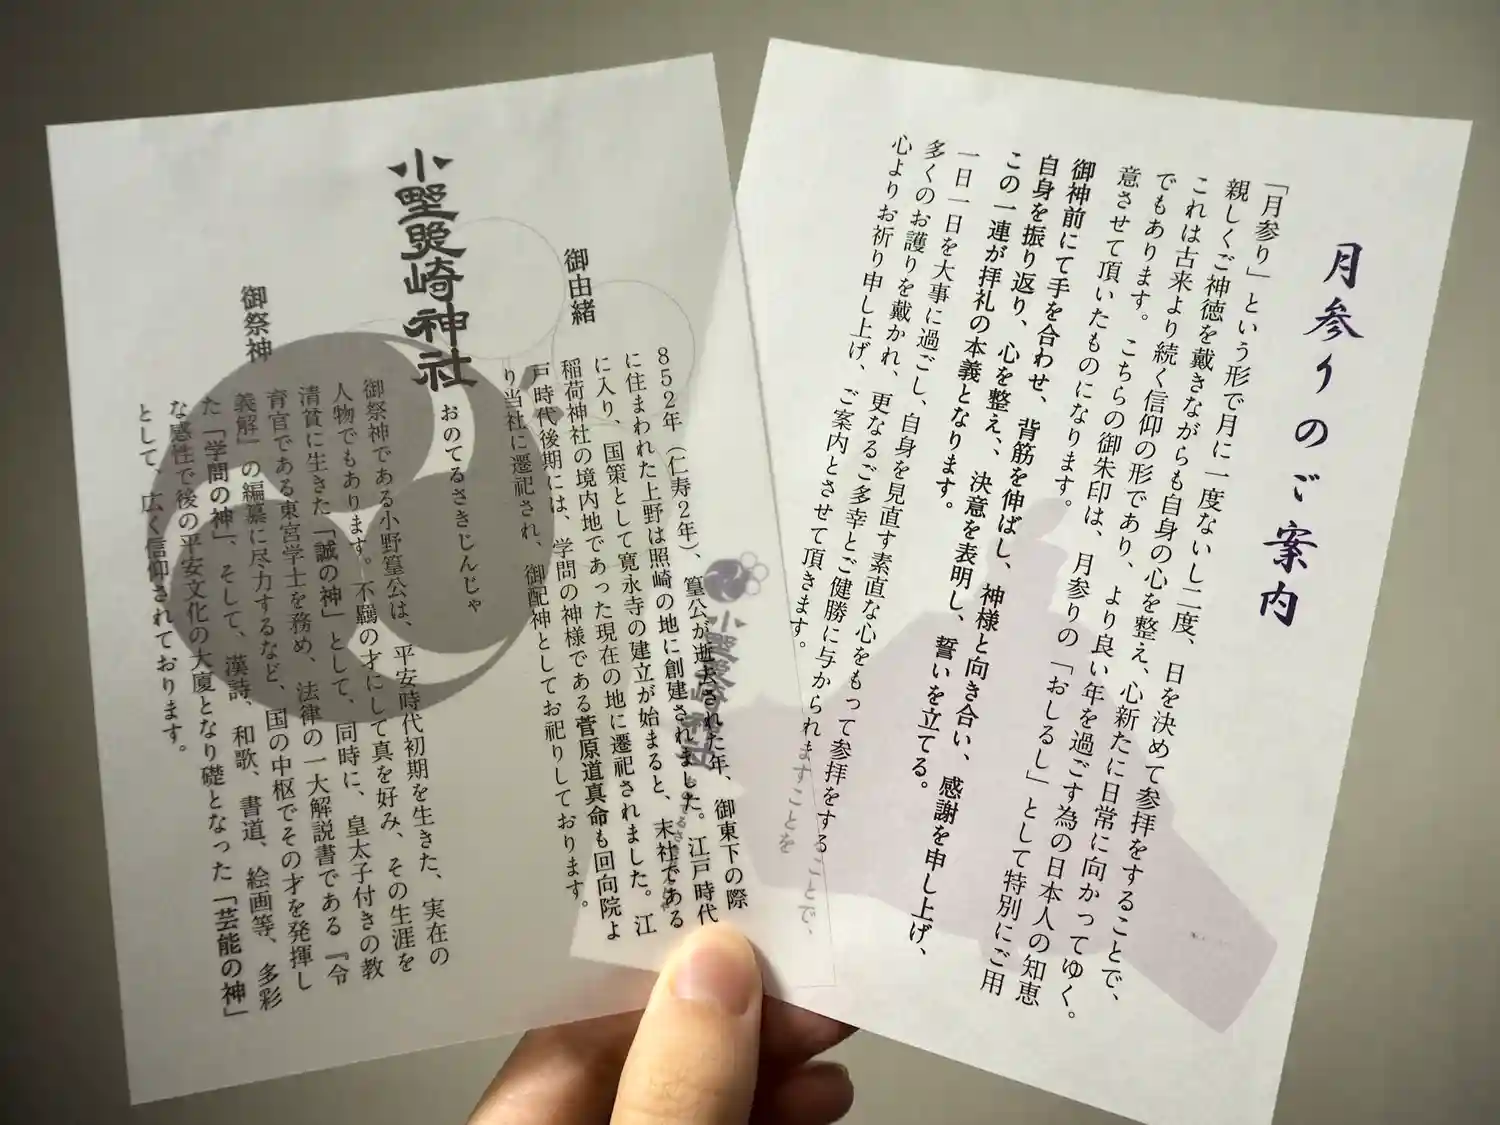 月参りのご案内
「月参り」という形で月に一度ないし二度、日を決めて参拝をすることで、
親しくご神徳を戴きながらも自身の心を整え、心新たに日常に向かってゆく。
これは古来より続く信仰の形であり、より良い年を過ごす為の日本人の知恵
でもあります。こちらの御朱印は、月参りの「おしるし」として特別にご用
意させて頂いたものになります。
御神前にて手を合わせ、背筋を伸ばし、神様と向き合い、感謝を申し上げ、
自身を振り返り、心を整え、決意を表明し、誓いを立てる。
この一連が拝礼の本義となります。
一日一日を大事に過ごし、自身を見直す素直な心をもって参拝をすることで、
多くのお護りを戴かれ、更なるご多幸とご健勝に与かられますことを
心よりお祈り申し上げ、ご案内とさせて頂きます。
小野照崎神社
おのてるさきじんじゃ
御由緒
852年（仁寿2年）、篁公が逝去された年、御東下の際
に住まわれた上野は照崎の地に創建されました。江戸時代
に入り、国策として寛永寺の建立が始まると、末社である
稲荷神社の境内地であった現在の地に遷祀されました。江
戸時代後期には、学問の神様である菅原道真命も回向院よ
り当社に遷祀され、御配神としてお祀りしております。
御祭神
御祭神である小野篁公は、平安時代初期を生きた、実在の
人物でもあります。不羈の才にして真を好み、その生涯を
清貧に生きた「誠の神」として、同時に、皇太子付きの教
育官である東宮学士を務め、法律の一大解説書である『令
義解』の編纂に尽力するなど、国の中枢でその才を発揮し
た「学問の神」、そして、漢詩、和歌、書道、絵画等、多彩
な感性で後の平安文化の大廈となり礎となった「芸能の神」
として、広く信仰されております。
小野照崎神社